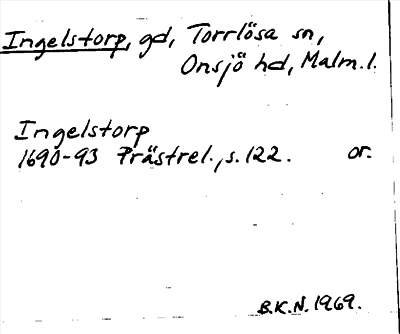 Ingelstorp, gd, Torrlösa sn,
Onsjö hd, Malm.l.
Ingelstorp
1690-93 Prästrel., s. 122. or.
B.K.N. 1969.